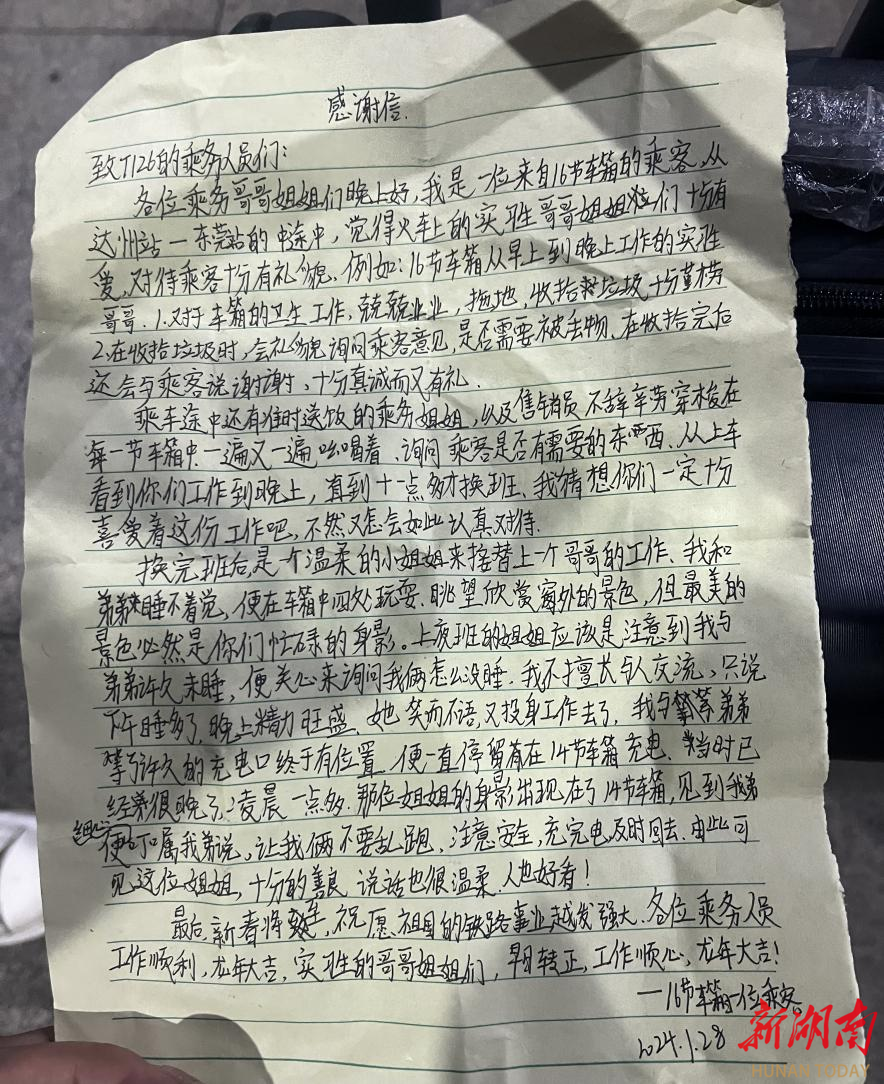 感谢信.
致T126的乘务人员们:
各位乘务哥哥姐姐们晚上好,我是一位来自16节车箱的乘客,从
达州站一东莞站的中途中,觉得火车上的实习生哥哥姐姐们十分有
爱,对待乘客十分有礼貌.例如:16节车箱从早上到晚上工作的实习生
哥哥.1.对于车箱的卫生工作,兢兢业业,拖地,收拾垃圾十分勤劳
2.在收拾垃圾时,会礼貌询问乘客意见,是否需要被丢物、在收拾完后
还会与乘客说谢谢,十分真诚而又有礼.
乘车途中还有准时送饭的乘务姐姐,以及售销员不辞辛劳穿梭在
每一节车箱中.一遍又一遍吆喝着.询问乘客是否有需要的东西.从上车
看到你们工作到晚上,直到十一点多才换班、我猜想你们一定十分
喜爱着这份工作吧,不然又怎会如此认真对待.
换完班后,是一个温柔的小姐姐来接替上一个哥哥的工作、我和
弟弟睡不着觉,便在车箱中四处玩耍.眺望欣赏窗外的景色,但最美的
景色必然是你们忙碌的身影。上夜班的姐姐应该是注意到我与
弟弟许久未睡,便关心来询问我俩怎么没睡.我不擅长与人交流、只说
下午睡多了,晚上精力旺盛.她笑而不语,又投身工作去了,我与弟弟
等了许久的充电口终于有位置.便一直停留在14节车箱充电.当时已
经很晚了,凌晨一点多.那位姐姐的身影出现在了14节车箱,见到我弟
便细心叮嘱我弟说,让我俩不要乱跑、注意安全,充完电及时回去.由此可
见这位姐姐,十分的善良 说话也很温柔.人也好看!
最后,新春将至,祝愿祖国的铁路事业越发强大.各位乘务人员
工作顺利,龙年大吉,实习生的哥哥姐姐们,早日转正,工作顺心,龙年大吉!
—16节车箱一位乘客
2024.1.28
新湖南
HUNAN TODAY